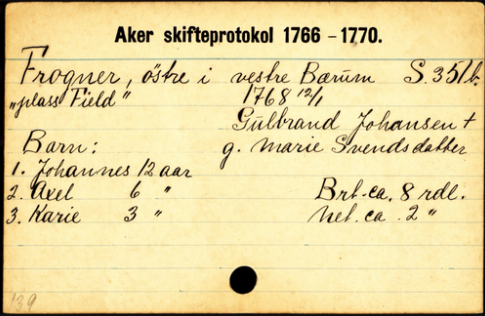 Aker skifteprotokol 1766 - 1770.
Frogner, östre i vestre Bærum S. 351b.
"plass Field" 1768 12/1
Gulbrand Johansen +
Barn: g. Marie Svendsdatter
1. Johannes 12 aar
2. Axel 6 " Brt. ca. 8 rdl.
3. Karie 3 " Net. ca. 2 "
139